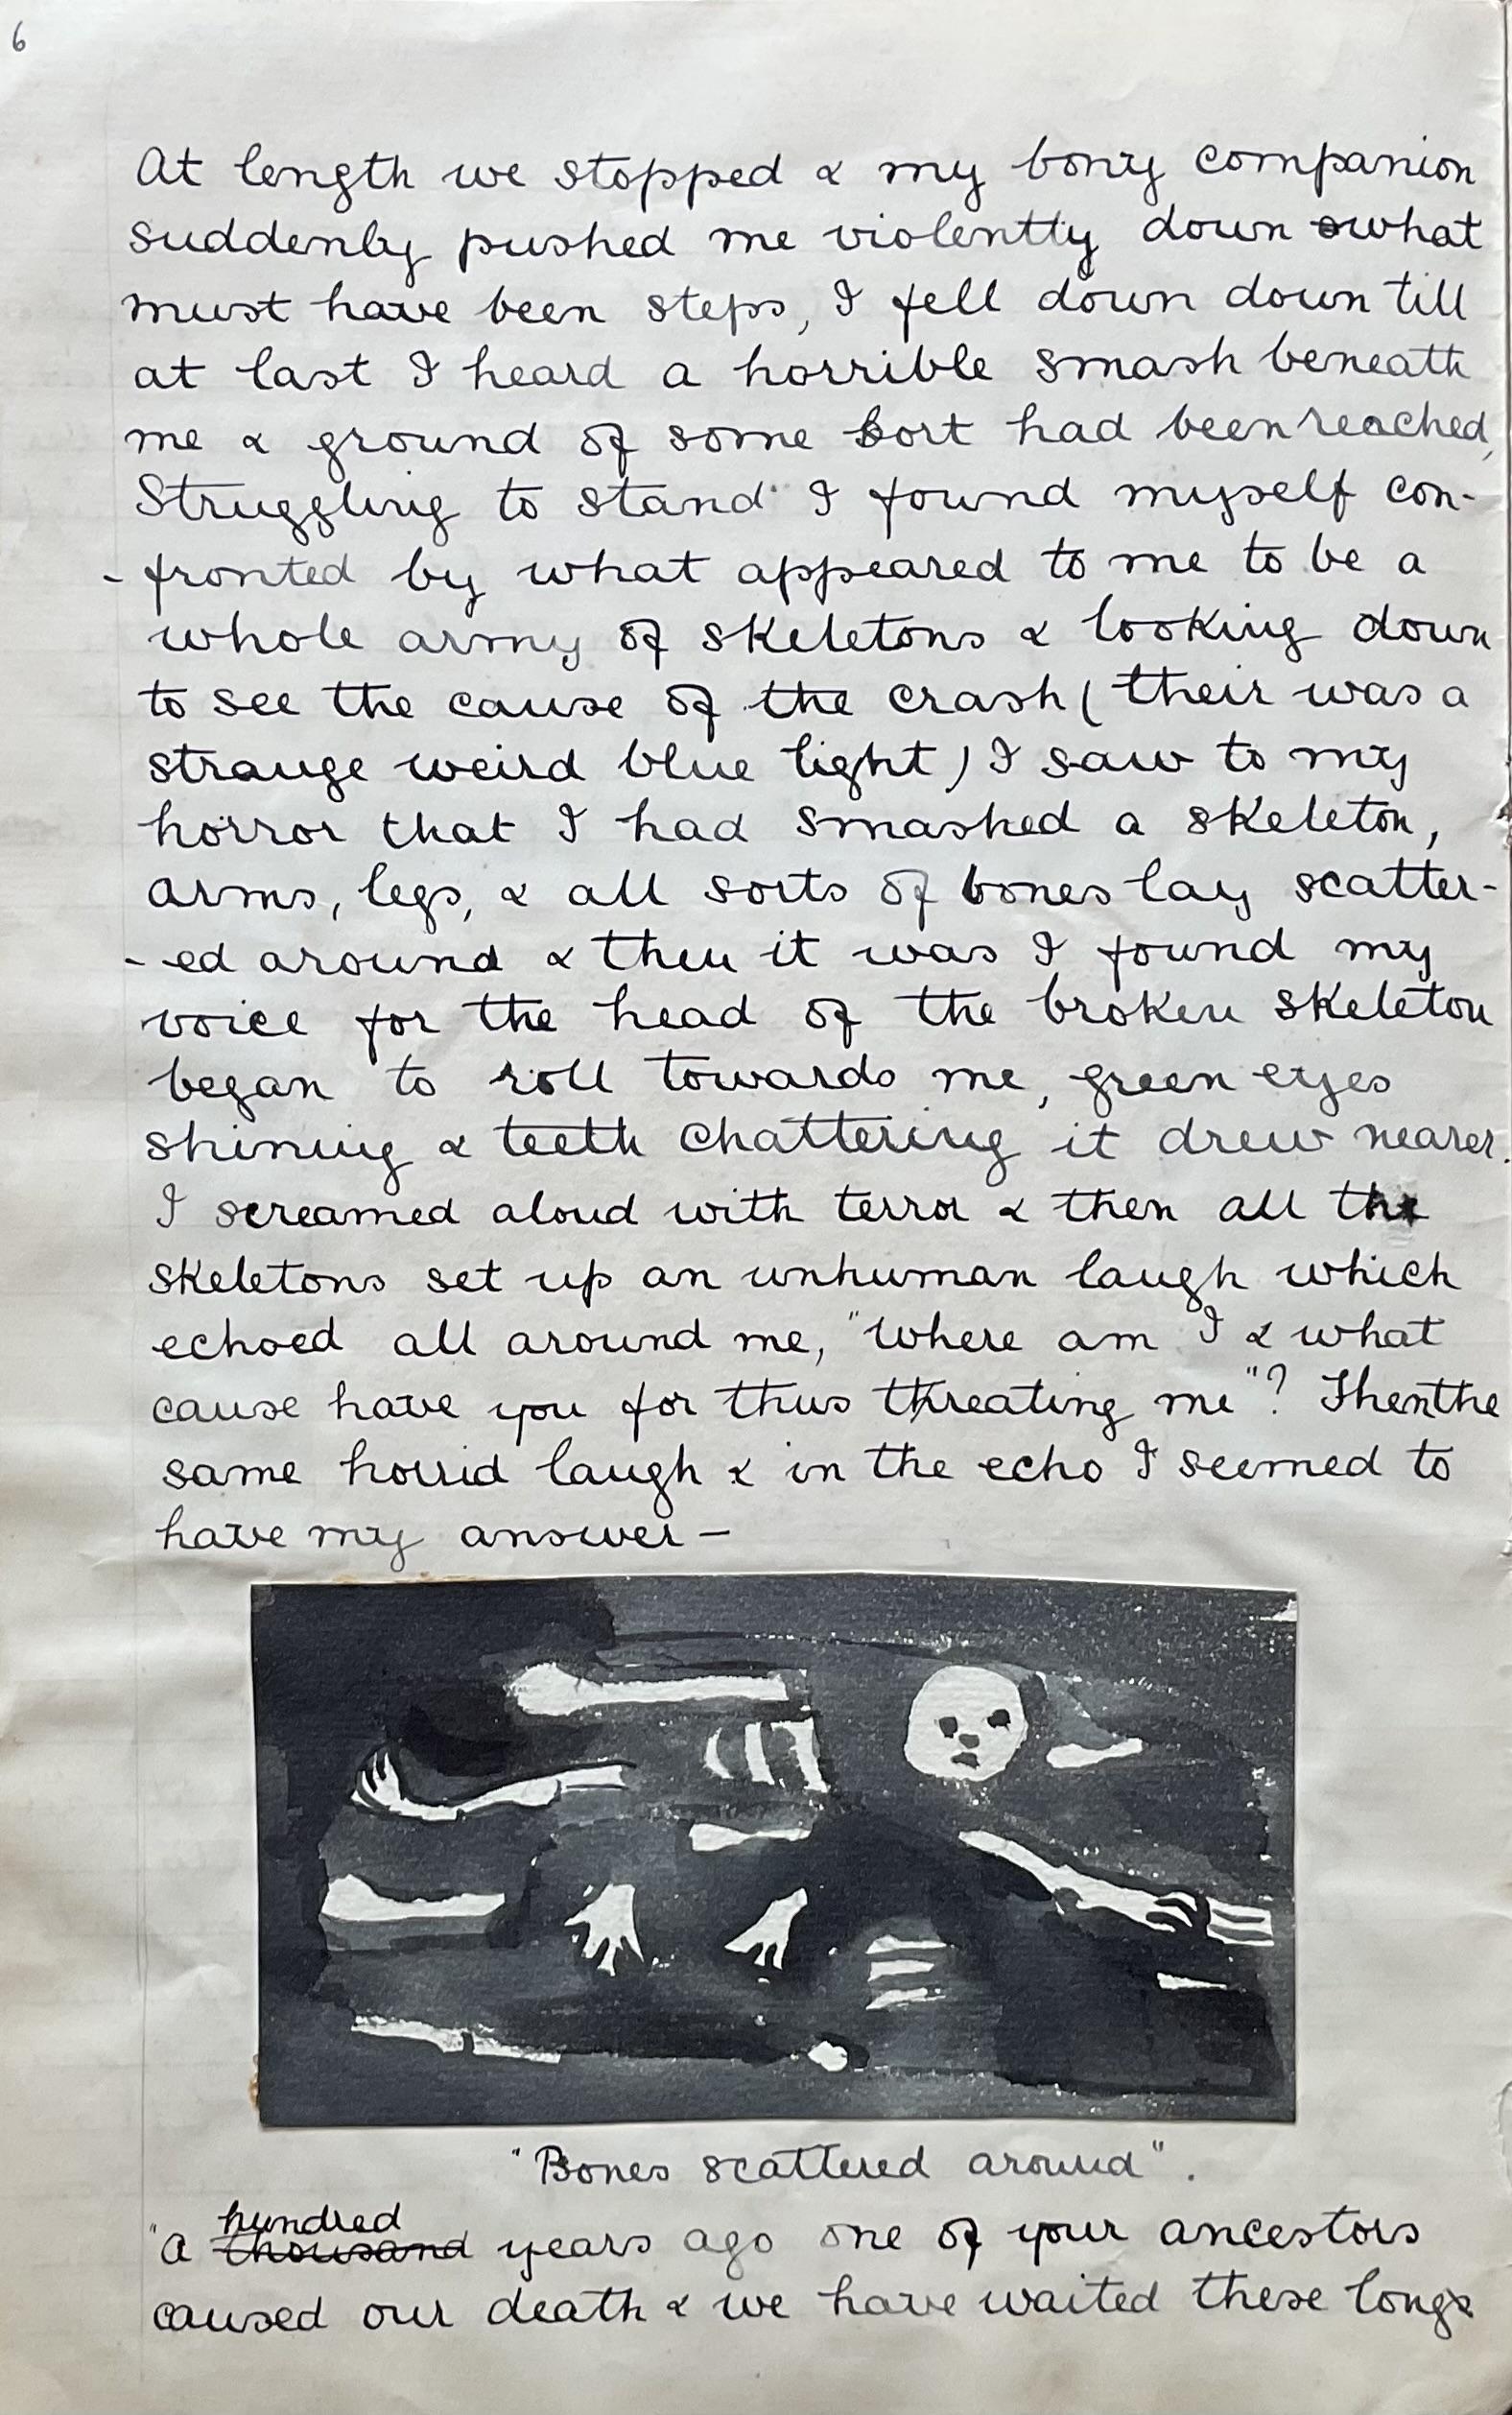 6
At length we stopped & my bony companion
suddenly pushed me violently down what
must have been steps, I fell down down till
at last I heard a horrible smash beneath
me & ground of some sort had been reached,
Struggling to stand I found myself con-
- fronted by what appeared to me to be a
whole army of skeletons & looking down
to see the cause of the crash (their was a
strange weird blue light) I saw to my
horror that I had smashed a skeleton,
arms, legs, & all sorts of bones lay scatter-
- ed around & then it was I found my
voice for the head of the broken skeleton
began to roll towards me, green eyes
shining & teeth chattering it drew nearer.
I screamed aloud with terror & then all the
skeletons set up an unhuman laugh which
echoed all around me, "Where am I & what
cause have you for thus threating me"? Then the
same horrid laugh & in the echo I seemed to
have my answer —
"Bones scattered around".
"A thousand hundred years ago one of your ancestors
caused our death & we have waited these long